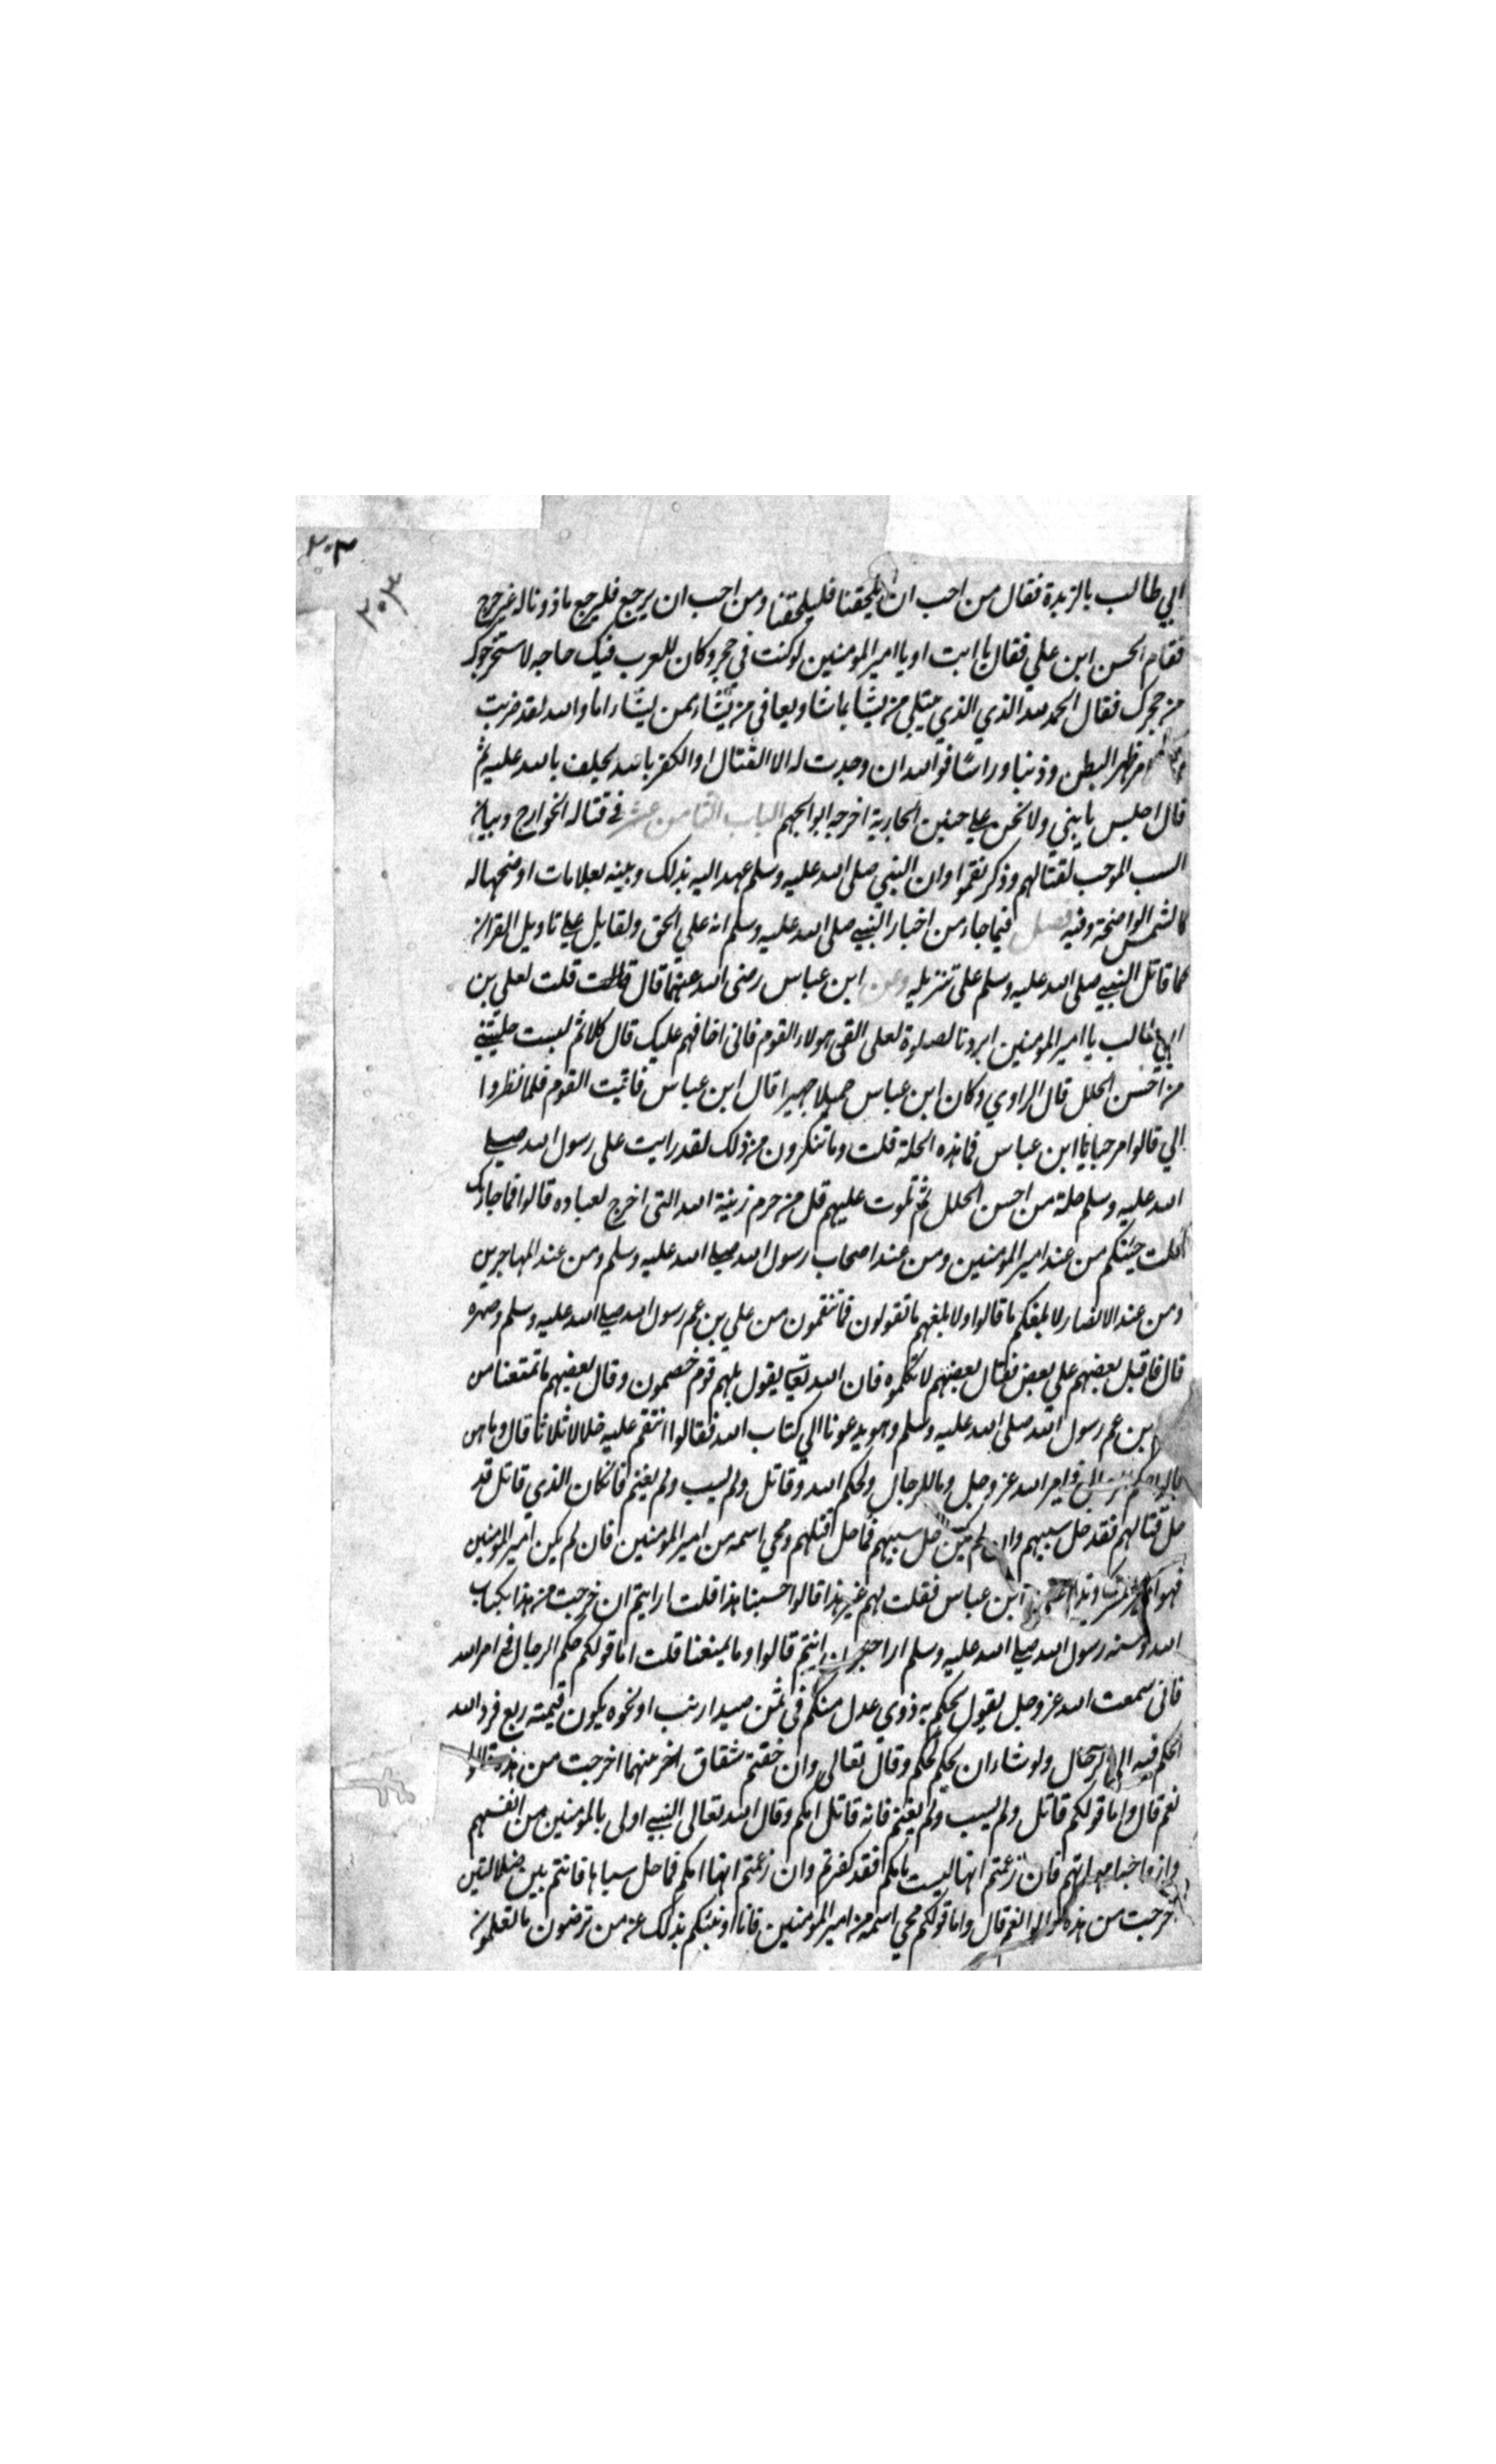 ٣٠٣
٣٠٣
ابي طالب بالربدة فقال من احب ان يلحقنا فليلحقنا ومن احب ان يرجع فليرجع ماذونا له غير حرج
فقام الحسن ابن علي فقال يا ابت او يا امير المومنين لو كنت في حجر وكان للعرب فيك حاجه لاستخرجوك
من حجرك فقال الحمد لله الذي الذي يبتلي من يشا بما شا ويعافي من يشاء بمن يشاء اما والله لقد ضربت
ظهر البطن وذنبا وراسا فوالله ان وجدت له الا القتال او الكفر بالله يحلف بالله عليه ثم
قال اجلس يا بني ولا تحن علي حنين الجارية اخرجه ابو الجهم الباب الثامن عشر في قتاله الخوارج وبيان
السبب الموجب لقتالهم وذكر نقموا وان النبي صلى الله عليه وسلم عهد اليه بذلك وبينه بعلامات اوضحها له
كالشمس الواضحة وفيه فصل فيما جاء من اخبار النبي صلى الله عليه وسلم انه علي الحق ولقايل علي تاويل القران
كما قاتل النبي صلى الله عليه وسلم على تنزيله وعن ابن عباس رضى الله عنهما قال قلت لعلي بن
ابي طالب يا امير المومنين ابرد بالصلوة لعلى القى هولاء القوم فانى اخافهم عليك قال كلا ثم لبست حلتين
من احسن الحلل قال الراوي وكان ابن عباس جميلا جهيرا قال ابن عباس فاتيت القوم فلما نظروا
الي قالوا مرحبا يا ابن عباس فما هذه الحلة قلت وما تنكرون من ذلك لقد رايت على رسول الله صلى
الله عليه وسلم حلة من احسن الحلل ثم تلوت عليهم قل من حرم زينة الله التى اخرج لعباده قالوا فما جاء بك
قلت جيتكم من عند امير المومنين ومن عند اصحاب رسول الله صلى الله عليه وسلم ومن عند المهاجرين
ومن عند الانصار لابلغكم ما قالوا ولابلغهم ما تقولون فما تنقمون من علي بن عم رسول الله صلى الله عليه وسلم وصهره
قال فاقبل بعضهم علي بعض فقال بعضهم لا تكلموه فان الله تعالى يقول بل هم قوم خصمون وقال بعضهم ما تمنعنا من
ابن عم رسول الله صلى الله عليه وسلم وهو يدعونا الي كتاب الله فقالوا انتقم عليه خلالا ثلاثا قال وما هن
قالوا حكم الرجال في امر الله عز وجل وما للرجال ولحكم الله وقاتل ولم يسب ولم يغنم فان كان الذي قاتل قد
حل قتالهم فقد حل سبيهم وان لم يكن حل سبيهم فما حل قتلهم ومحي اسمه من امير المومنين فان لم يكن امير المومنين
فهو امير ابن عباس فقلت لهم غير هذا قالوا حسبنا هذا قلت ارايتم ان خرجت من هذا بكتاب
الله وسنه رسول الله صلى الله عليه وسلم اراجعون انتم قالوا وما يمنعنا قلت اما قولكم حكم الرجال في امر الله
فانى سمعت الله عز وجل يقول يحكم به ذوي عدل منكم في ثمن صيد ارنب او نحوه يكون قيمته ربع فرد الله
الحكم فيه الى الرجال ولو شاء ان يحكم لحكم وقال تعالى وان خفتم شقاق اخرجت من هذه قالوا
نعم قال واما قولكم قاتل ولم يسب ولم يغنم فانه قاتل امكم وقال الله تعالى النبي اولى بالمومنين من انفسهم
وازواجه امهاتهم فان زعمتم انها ليست بامكم فقد كفرتم وان زعمتم انها امكم فما حل سباها فانتم بين ضلالتين
خرجت من هذه قالوا نعم قال واما قولكم محي اسمه من امير المومنين فانا انبئكم بذلك عن من ترضون